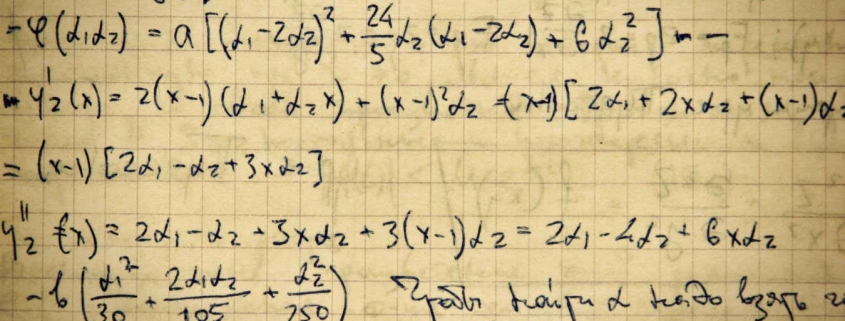 - φ(α₁α₂) = a [(α₁-2α₂)² + 24/5 α₂(α₁-2α₂) + 6α₂²] - -
y₂'(x) = 2(x-1)(α₁+α₂x) + (x-1)²α₂ = (x-1)[2α₁ + 2xα₂ + (x-1)α₂
= (x-1) [2α₁ - α₂ + 3xα₂]
y₂''(x) = 2α₁ - α₂ + 3xα₂ + 3(x-1)α₂ = 2α₁ - 4α₂ + 6xα₂
- b (α₁²/30 + 2α₁α₂/105 + α₂²/250) Чтобы найти α надо взять